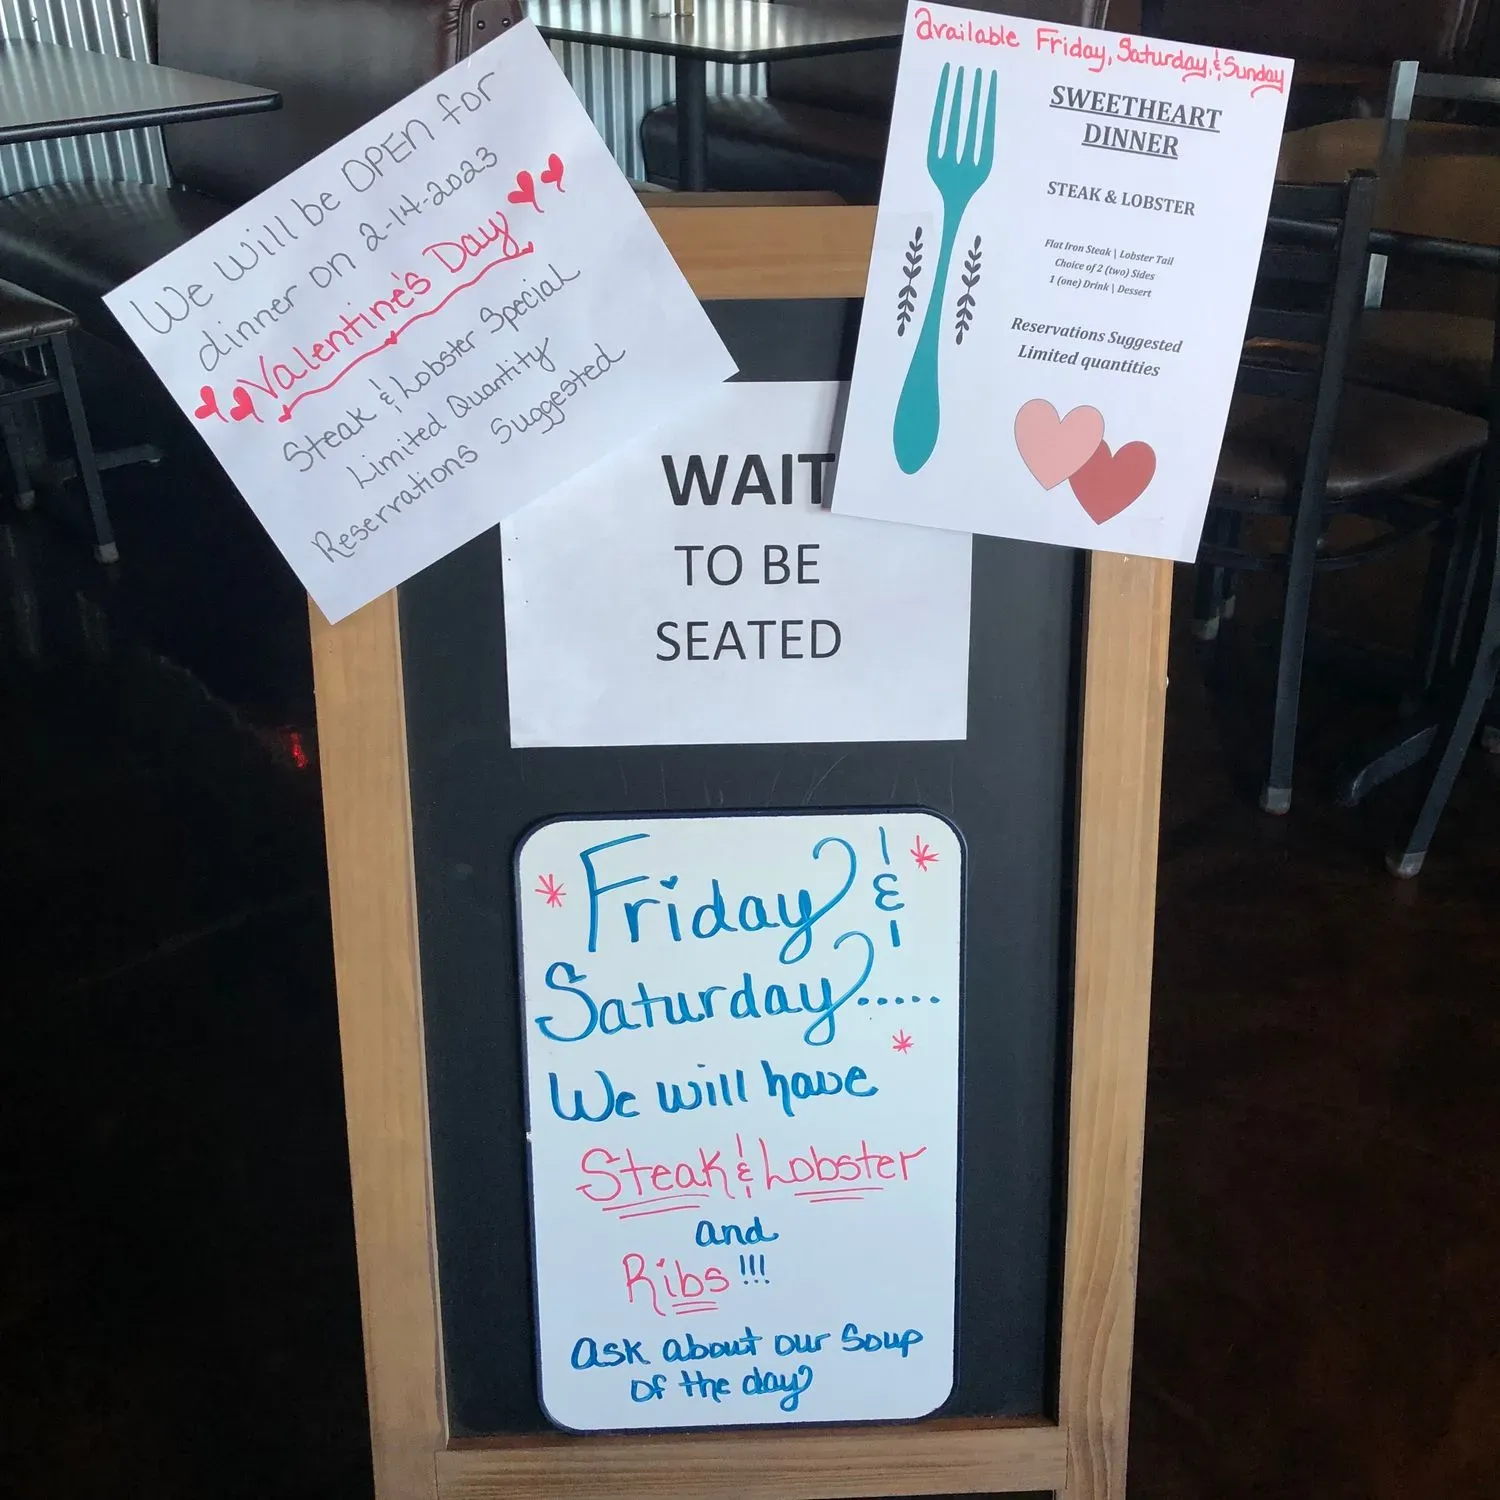 We will be OPEN for
dinner on 2-14-2023
Valentine's Day
Steak & Lobster Special
Limited Quantity
Reservations Suggested
available Friday, Saturday, & Sunday
SWEETHEART
DINNER
STEAK & LOBSTER
Flat Iron Steak | Lobster Tail
Choice of 2 (two) Sides
1 (one) Drink | Dessert
Reservations Suggested
Limited quantities
WAIT
TO BE
SEATED
Friday &
Saturday.....
We will have
Steak & Lobster
and
Ribs !!!
ask about our Soup
of the day